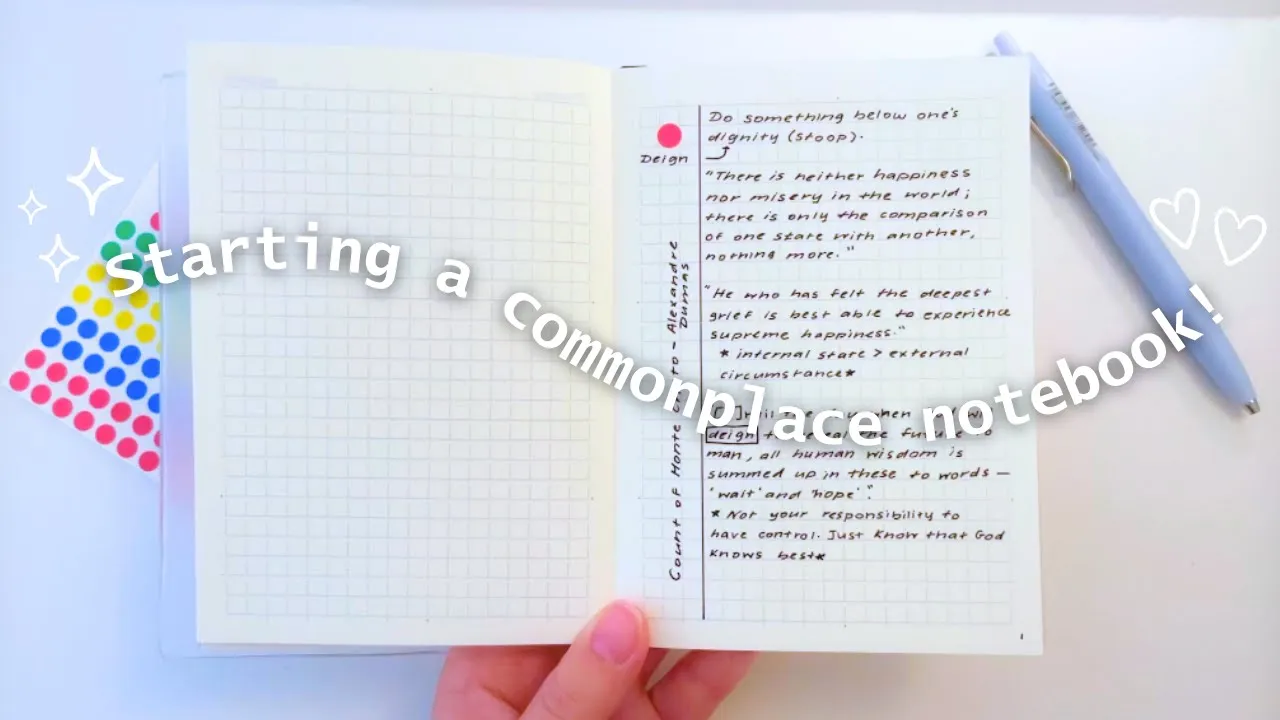 Starting a commonplace notebook!
Deign
Count of Monte - Alexandre
Dumas
Do something below one's
dignity (stoop).
"There is neither happiness
nor misery in the world;
there is only the comparison
of one state with another,
nothing more."
"He who has felt the deepest
grief is best able to experience
supreme happiness."
* internal state > external
circumstance*
when
deign the
man, all human wisdom is
summed up in these to words —
'wait' and 'hope'."
* Not your responsibility to
have control. Just know that God
knows best*
1